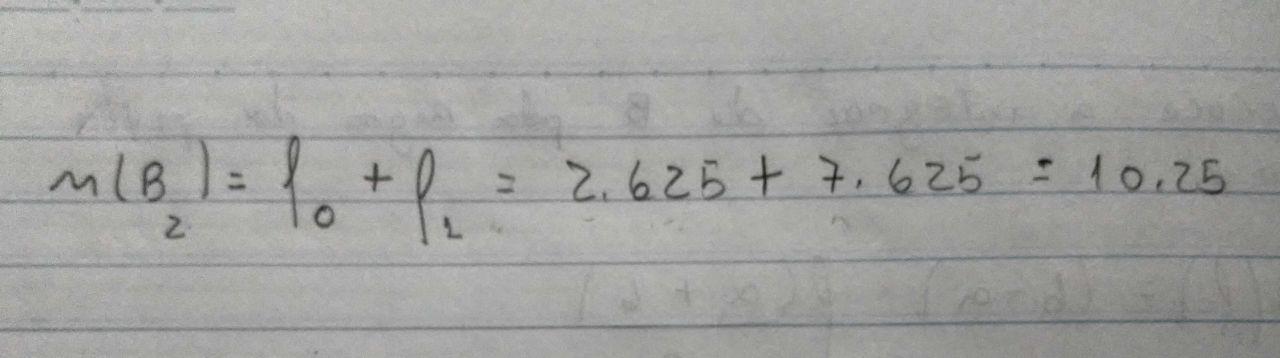 m(B₂) = f₀ + f₁ = 2.625 + 7.625 = 10.25